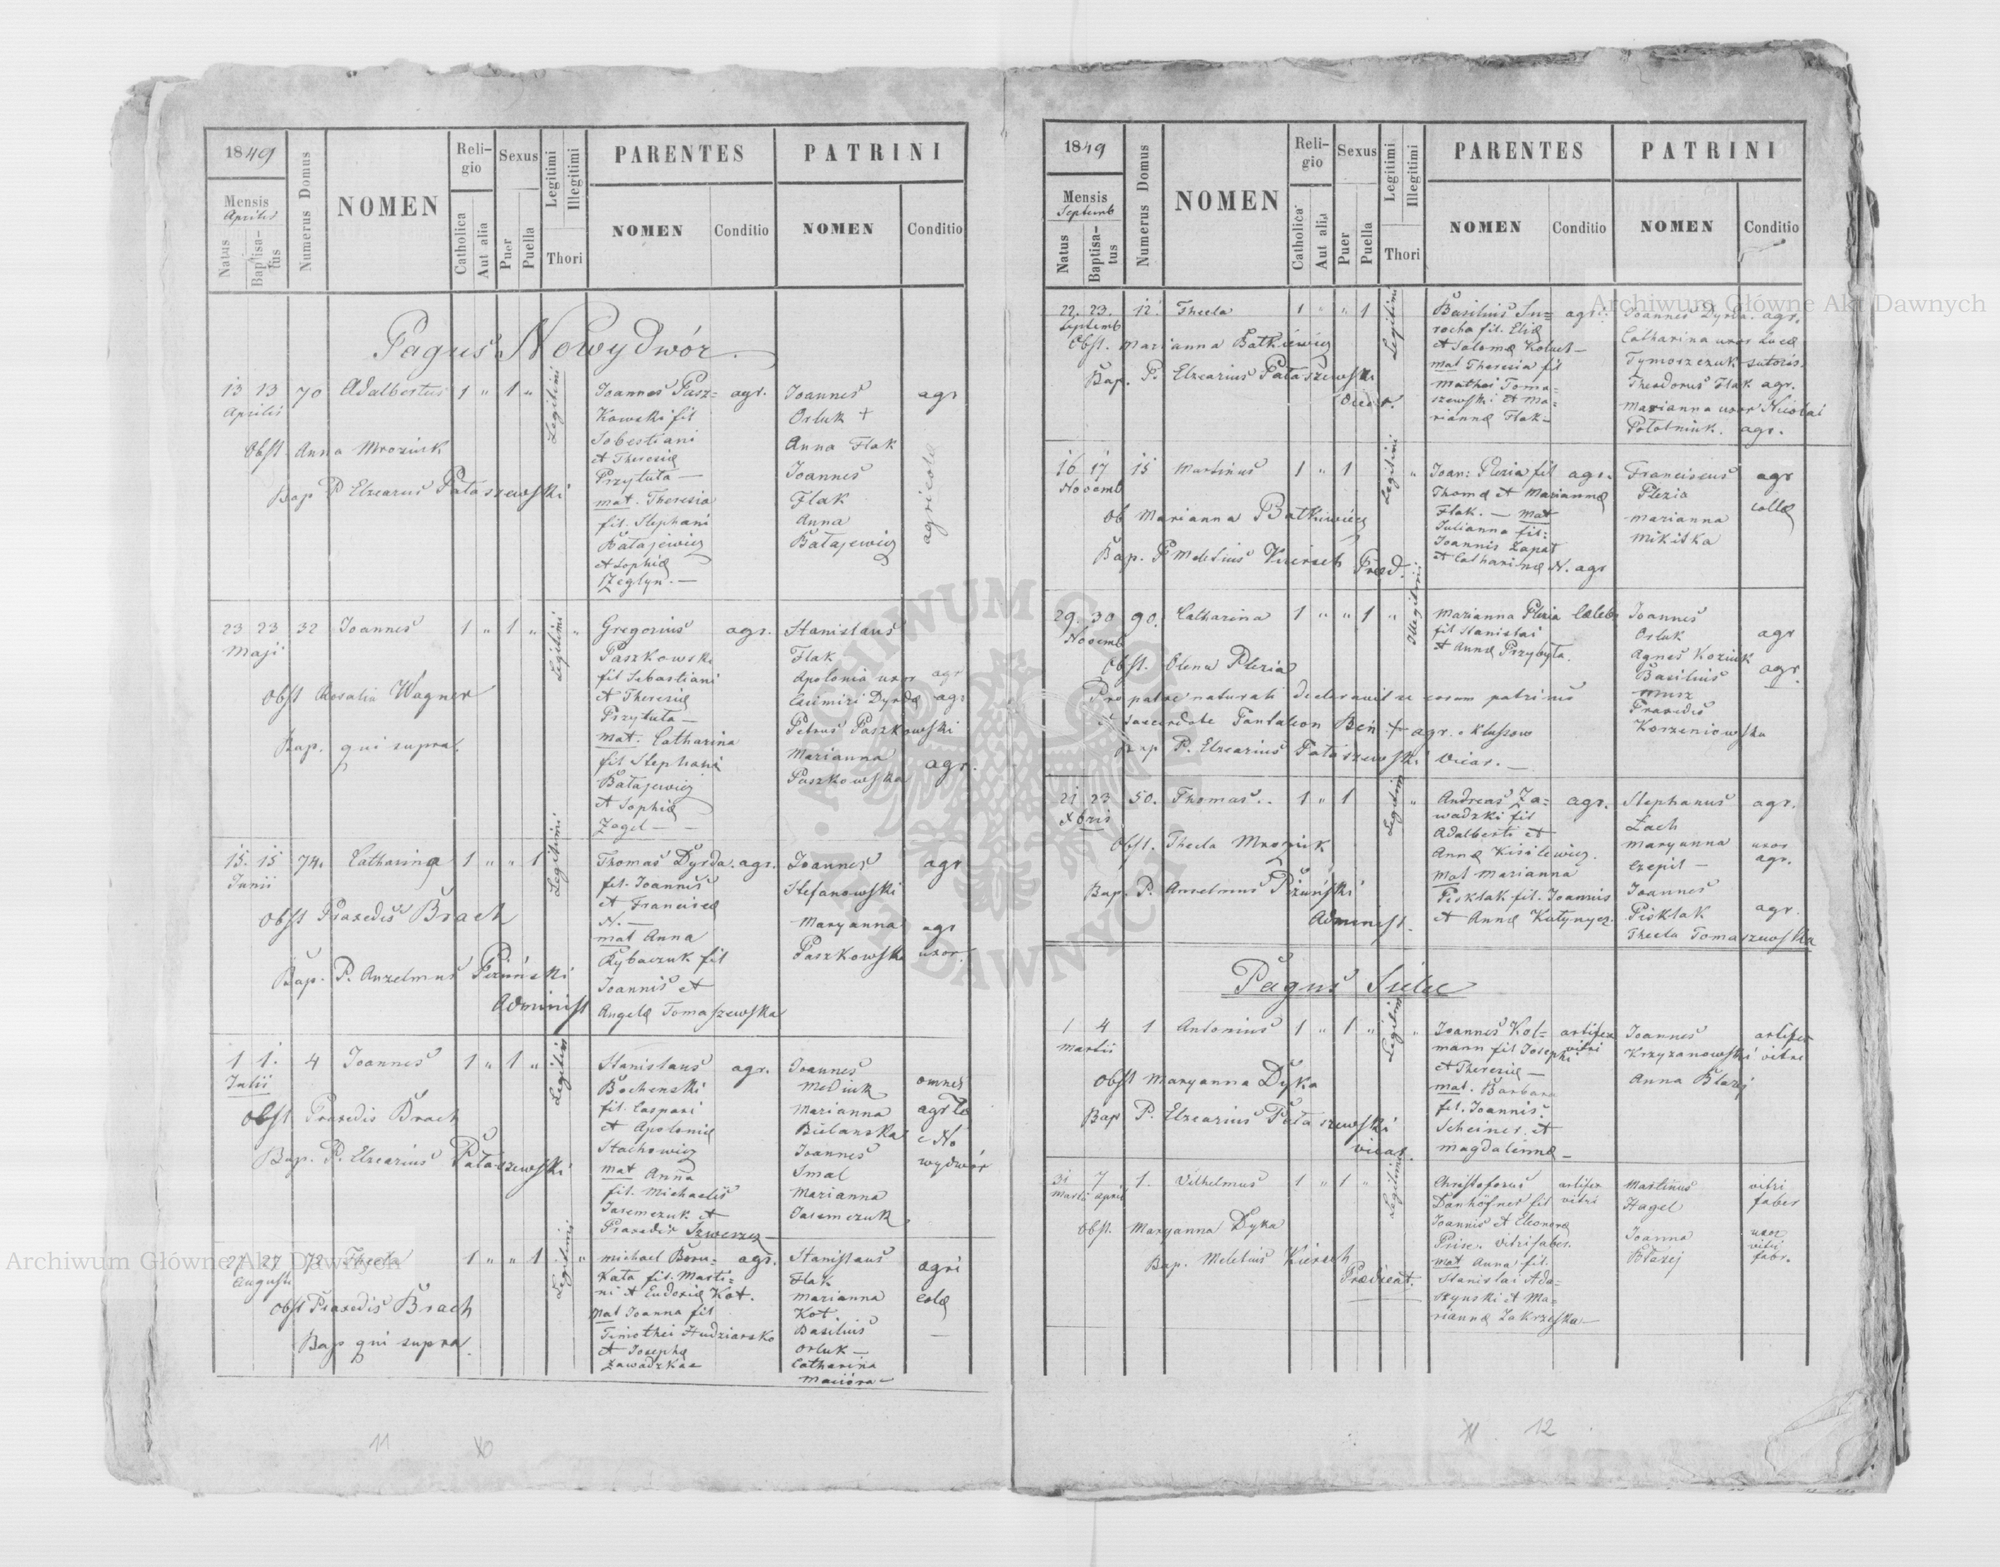 1849
Mensis
Aprilis
Natus
Baptisatus
Numerus Domus
NOMEN
Religio
Catholica
Aut alia
Sexus
Puer
Puella
Legitimi
Illegitimi
Thori
PARENTES
NOMEN
Conditio
PATRINI
NOMEN
Conditio
Pagus Nowydwór
13 13 70 Adalbertus 1 " 1 " Legitimi
Aprilis
Obst. Anna Mroziuk
Bap P Elzearus Pataszewski
Joannes Pasz= agr.
kowski fil
Sobestiani
et Theresiæ
Przytuła —
mat. Theresia
fil. Stephani
Batajewicz
et Sophiæ
Szeglyn. —
Joannes agr
Orluk +
Anna Flak
Joannes
Flak
Anna
Batajewicz
agricolæ
23 23 32 Joannes 1 " 1 " Legitimi "
Maji
Obst Rosalia Wagner
Bap. qui supra.
Gregorius agr.
Paszkowski
fil Sebastiani
et Theresiæ
Przytuła —
mat. Catharina
fil Stephani
Batajewicz
et Sophiæ
Zegel —
Stanislaus
Flak
Apolonia uxor agr
Casimiri Dyrdæ agr
Petrus Paszkowski
Marianna
Paszkowska agr.
15. 15 74. Catharina 1 " " 1 Legitimi
Junii
Obst Praxedis Brach
Bap. P. Anzelmus
Administ
Thomas Dyrda. agr.
fil. Joannis
et Franciscæ
N. —
mat Anna
Rybaczuk fil
Joannis et
Angelæ Tomaszewska
Joannes agr
Stefanowski
Maryanna agr
Paszkowska uxor.
1 1. 4 Joannes 1 " 1 " Legitimi
Julii
Obst Praxedis Brach
Bap. P. Elzearius Pataszewski
Stanislaus agr.
Bochenski
fil. Caspari
et Apoloniæ
Stachowicz
mat Anna
fil. Michaelis
Jaremczuk et
Praxedis
Joannes
Mediuk omnes
Marianna agrlæ
Bielanska e No
Joannes wydwór
Smal
Marianna
Jaremczuk
27 27 72 Thecla 1 " " 1 Legitimi "
Augusti
Obst Praxedis Brach
Bap qui supra.
Michael Boru= agr.
kata fil. Marti=
ni et Eudoxiæ Kot.
mat Joanna fil
Timothei
et Josephæ
Zawadzkæ
Stanislaus agri
Flak
Marianna colæ
Kot.
Basilius
Orluk —
Catharina
11
1849
Mensis
Septemb
Natus
Baptisatus
Numerus Domus
NOMEN
Religio
Catholica
Aut alia
Sexus
Puer
Puella
Legitimi
Illegitimi
Thori
PARENTES
NOMEN
Conditio
PATRINI
NOMEN
Conditio
22. 23. 12. Thecla 1 " " 1 Legitimi
Septemb
Obst. Marianna Batkiewicz
Bap. P. Elzearius Pataszewski
Basilius Su= agr.
rocha fil. Eliæ
et Salomæ
mat Theresia fil
Mathei Toma=
szewski et Ma=
riannæ Flak—
Joannes Dyrda. agr.
Catharina uxor Lucæ
Tymoszczuk sutoris.
Theodorus Flak agr.
Marianna uxor Nicolai
agr.
16 17 15 Martinus 1 " 1 Legitimi "
Novemb
Ob Marianna Batkiewicz
Bap. P Meletius Præd.
Joan: Plezia fil agr.
Thomæ et Mariannæ
Flak. — mat
Julianna fil:
Joannis Zapał
et Catharinæ N. agr
Franciscus agr
Plezia
Marianna collæ
Mikitka
29. 30 90. Catharina 1 " " 1 " Illegitimi
Novemb
Obst. Elena Plezia
Pro patre naturali declaravit se coram patrinis
et sacerdote Pantaleon Beń + agr. e Klussow
Bap P. Elzearius Pataszewski Vicar. —
Marianna Plezia
fil Stanislai
et Annæ Przybyta.
Joannes
Orluk agr
Agnes Koziuk
Basilius agr.
Musz
Praxedis
Korzeniowska
21 23 50. Thomas.. 1 " 1 Legitimi "
Xbris
Obst. Thecla Mroziuk
Bap. P. Anselmus
Administ.
Andreas Za= agr.
wadzki fil
Adalberti et
Annæ Kisilewicz.
mat Marianna
Pisklak fil. Joannis
et Annæ
Stephanus agr.
Lach
Maryanna uxor
Czepil — agr.
Joannes
Pisklak agr.
Thecla Tomaszewska
Pagus Sielec
1 4 1 Antonius 1 " 1 " Legitimi "
Martii
Obst Maryanna Dyka
Bap P. Elzearius Pataszewski
vicar.
Joannes Kol= artifex
mann fil Josephi vitri
et Theresiæ —
mat. Barbara
fil. Joannis
Scheiner. et
Magdalennæ —
Joannes artifex
Krzyzanowski vitri
Anna Błazej
31 7 1. Vilhelmus 1 " 1 " Legitimi
Martii April
Obst. Maryanna Dyka
Bap. Meletius
Prædicat.
Christoforus artifex
Danhöfner fil vitri
Joannis et Eleonoræ
Prise. vitri faber.
mat Anna fil.
Stanislai Ada=
szynski et Ma=
riannæ Zakrzeska—
Martinus vitri
Hagel faber
Joanna uxor
Błazej vitri
fabr.
12
Archiwum Główne Akt Dawnych
Archiwum Główne Akt Dawnych
ARCHIWUM GŁÓWNE AKT DAWNYCH